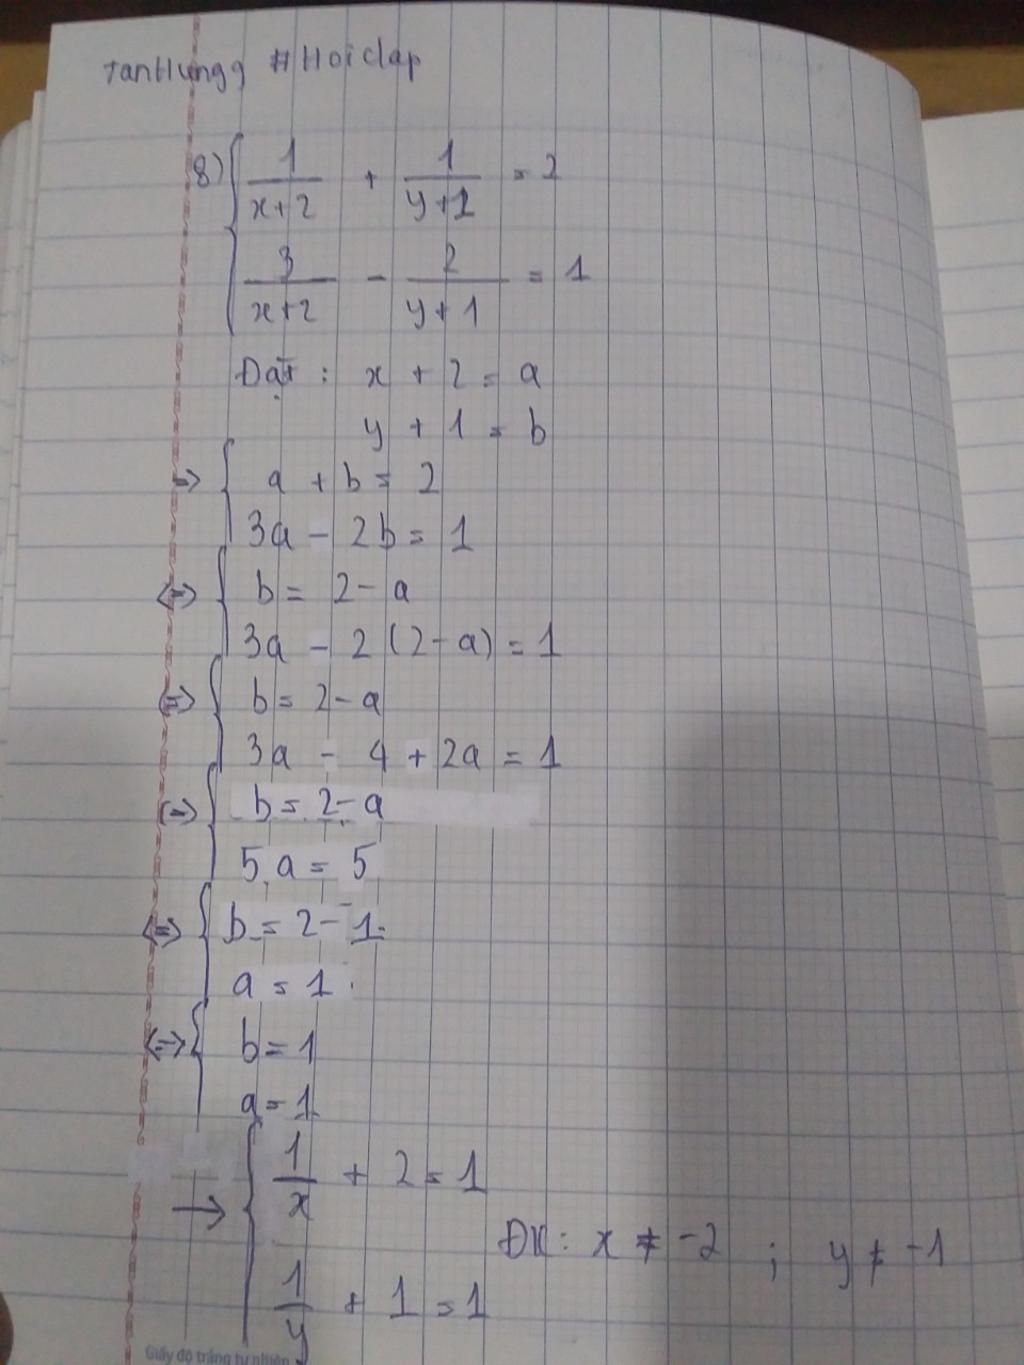 TanHung9 #Hoidap
8) { 1/(x+2) + 1/(y+1) = 2
3/(x+2) - 2/(y+1) = 1
Đặt : x + 2 = a
y + 1 = b
=> { a + b = 2
3a - 2b = 1
<=> { b = 2 - a
3a - 2(2-a) = 1
<=> { b = 2 - a
3a - 4 + 2a = 1
<=> { b = 2 - a
5a = 5
<=> { b = 2 - 1
a = 1
<=> { b = 1
a = 1
→ { 1/x + 2 = 1
ĐK: x ≠ -2 ; y ≠ -1
1/y + 1 = 1
Giấy độ trắng tự nhiên